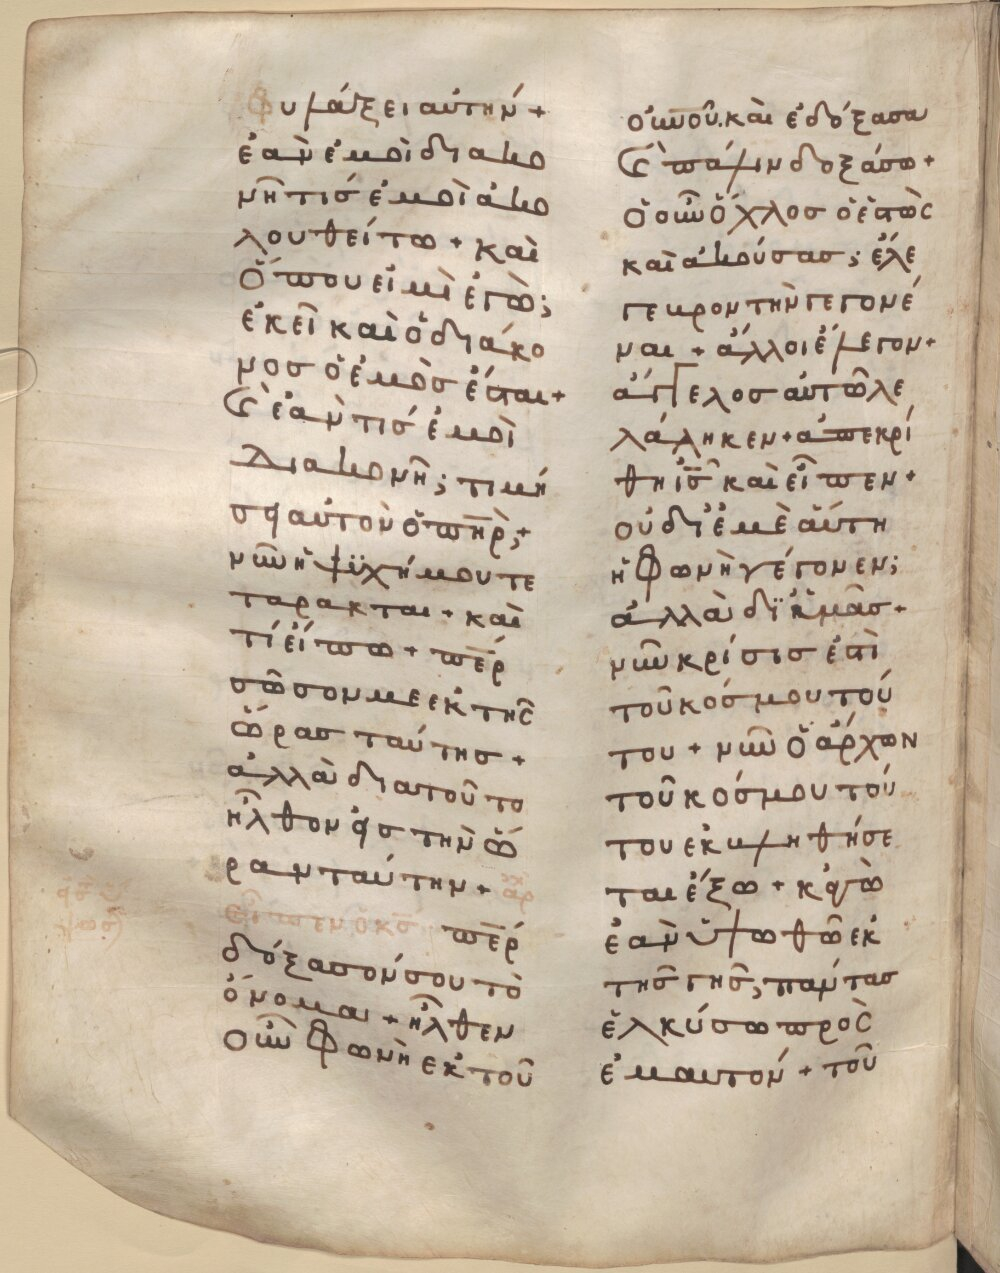 Φυλάξει αὐτήν +
ἐὰν ἐμοὶ διακο
νῆ τισ ἐμοὶ ἀκο
λουθείτω + καὶ
ὅπου εἰμὶ ἐγὼ;
ἐκεῖ καὶ ὁ διάκο
νοσ ὁ ἐμὸσ ἔσται +
Ϛ ἐάν τισ ἐμοὶ
διακονῆ; τιμή
σει αὐτὸν ὁ πη̅ρ; +
νῦν ἡ ψϋχή μου τε
τάρακται + καὶ
τί εἴπω + πε̅ρ
σῶσον με ἐκ τῆσ
ὥρασ ταύτησ +
ἀλλὰ διατοῦτο
ἦλθον εἰσ τὴν ὥ
ραν ταύτην + ἀρχ
εἶπεν ὁ κσ̅ πε̅ρ
δόξασόν σου τὸ
ὄνομα + ἦλθεν
οὖν Φωνὴ ἐκ τοῦ
οὐ̅νοῦ. καὶ ἐδόξασα
Ϛ πάλιν δοξάσω +
ὁ οὖν ὄχλοσ ὁ ἑστὼσ
καὶ ἀκούσασ; ἔλε
γε βροντὴν γεγονέ
ναι + ἄλλοι ἔλεγον +
ἄγγελοσ αὐτῶ λε
λάληκεν + ἀπεκρί
θη ἰσ̅ καὶ εἶπεν +
οὐ δι' ἐμὲ αὕτη
ἡ Φωνὴ γέγονεν;
ἀλλὰ δϊ ὑμᾶσ +
νῦν κρίσισ ἐστὶ
τοῦ κόσμου τού
του + νῦν ὁ ἄρχων
τοῦ κόσμου τού
του ἐκβληθήσε
ται ἔξω + κἀγὼ
ἐὰν ὑψωθῶ ἐκ
τῆσ γῆσ; πάντασ
ἑλκύσω πρὸσ
ἐμαυτόν + τοῦ